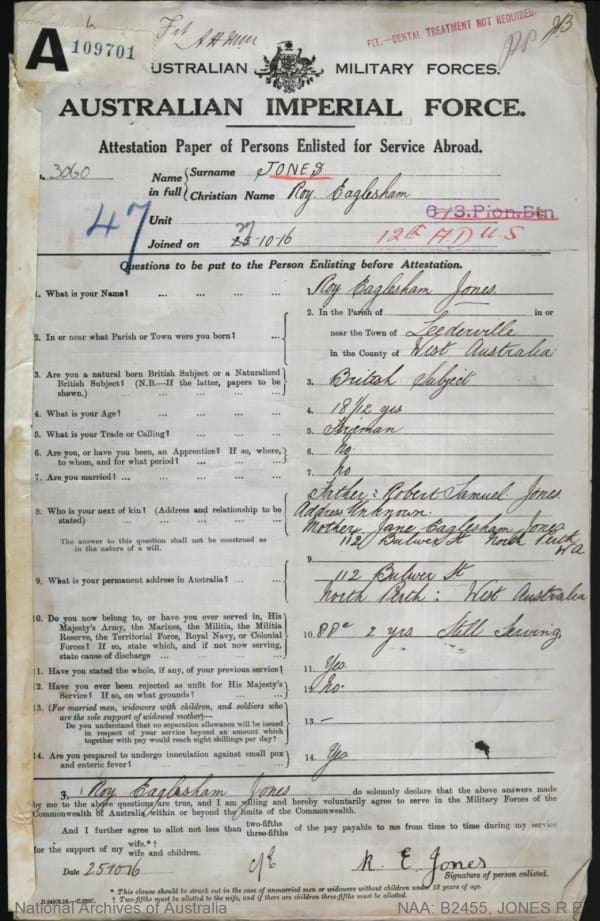 A 109701
Fit
FIT,—DENTAL TREATMENT NOT REQUIRED.
AUSTRALIAN MILITARY FORCES.
AUSTRALIAN IMPERIAL FORCE.
Attestation Paper of Persons Enlisted for Service Abroad.
3060
Name in full { Surname JONES
Christian Name Roy Eaglesham
47
Unit 6/3.Pion.Btn
12th
Joined on 27-10-16
Questions to be put to the Person Enlisting before Attestation.
1. What is your Name? ... ... ... ... 1. Roy Eaglesham Jones
2. In or near what Parish or Town were you born? ... 2. In the Parish of in or
near the Town of Leederville
in the County of West Australia
3. Are you a natural born British Subject or a Naturalized British Subject? (N.B.—If the latter, papers to be shown.) ... 3. British Subject
4. What is your Age? ... 4. 18 1/12 yrs
5. What is your Trade or Calling? ... 5.
6. Are you, or have you been, an Apprentice? If so, where, to whom, and for what period? ... 6. no
7. Are you married? ... 7. no
8. Who is your next of kin? (Address and relationship to be stated) Father: Robert Samuel Jones
Address Unknown.
Mother Jane Eaglesham Jones
112 Bulwer St North Perth
WA
The answer to this question shall not be construed as in the nature of a will.
9. What is your permanent address in Australia? ... 9. 112 Bulwer St
North Perth: West Australia
10. Do you now belong to, or have you ever served in, His Majesty's Army, the Marines, the Militia, the Militia Reserve, the Territorial Force, Royal Navy, or Colonial Forces? If so, state which, and if not now serving, state cause of discharge ... 10. 88e 2 yrs Still Serving
11. Have you stated the whole, if any, of your previous service? 11. Yes.
12. Have you ever been rejected as unfit for His Majesty's Service? If so, on what grounds? ... 12. No.
13. (For married men, widowers with children, and soldiers who are the sole support of widowed mother)—
Do you understand that no separation allowance will be issued in respect of your service beyond an amount which together with pay would reach eight shillings per day? 13. —
14. Are you prepared to undergo inoculation against small pox and enteric fever? ... 14. Yes
3, I Roy Eaglesham Jones do solemnly declare that the above answers made
by me to the above questions are true, and I am willing and hereby voluntarily agree to serve in the Military Forces of the
Commonwealth of Australia within or beyond the limits of the Commonwealth.
And I further agree to allot not less than two-fifths three-fifths of the pay payable to me from time to time during my service
for the support of my wife.*† wife and children.
Date 25/10/16 R. E. Jones
Signature of person enlisted.
* This clause should be struck out in the case of unmarried men or widowers without children under 18 years of age.
† Two-fifths must be allotted to the wife, and if there are children three-fifths must be allotted.
National Archives of Australia NAA: B2455, JONES R E